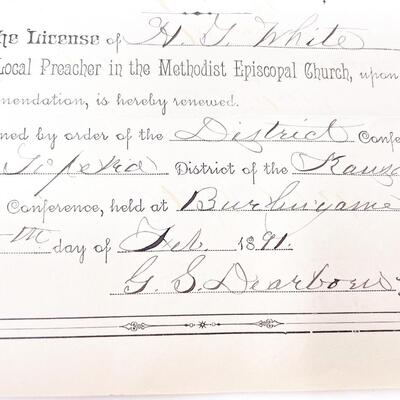 he License of H. T. White
Local Preacher in the Methodist Episcopal Church, upon
mendation, is hereby renewed.
ned by order of the District Confe
Topeka District of the Kansa
Conference, held at Burlingame
th day of Feb. 1891.
G. S. Dearborn